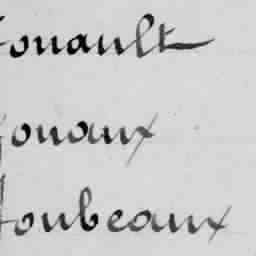 Fouault
Jouaux
Foubeaux